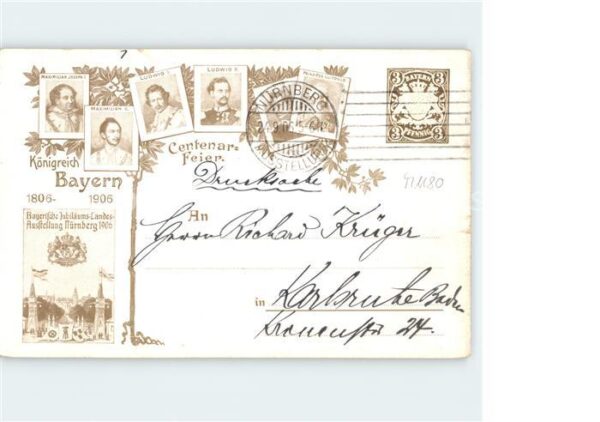 MAXIMILIAN JOSEPH I.
MAXIMILIAN II.
LUDWIG I.
LUDWIG II.
PRINZREG. LUITPOLD
NÜRNBERG
AUSSTELLUNG
3 BAYERN 3
3 PFENNIG 3
Königreich
Bayern
1806-1906
Centenar-
Feier.
Drucksache
Bayerische Jubiläums-Landes-
Ausstellung Nürnberg 1906
An
Herrn Richard Krüger
in Karlsruhe Baden
Kronenstr 24.